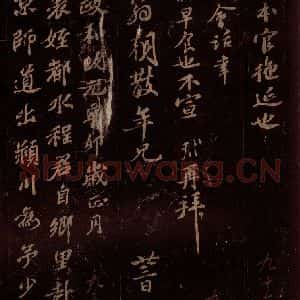 本官拖延也
會話
早食也不宣 再拜
翁朝散年兄
政和改元辛卯歲正月
表姪都水程君自鄉里赴
京師道出潁川為予少
Shufawang.CN